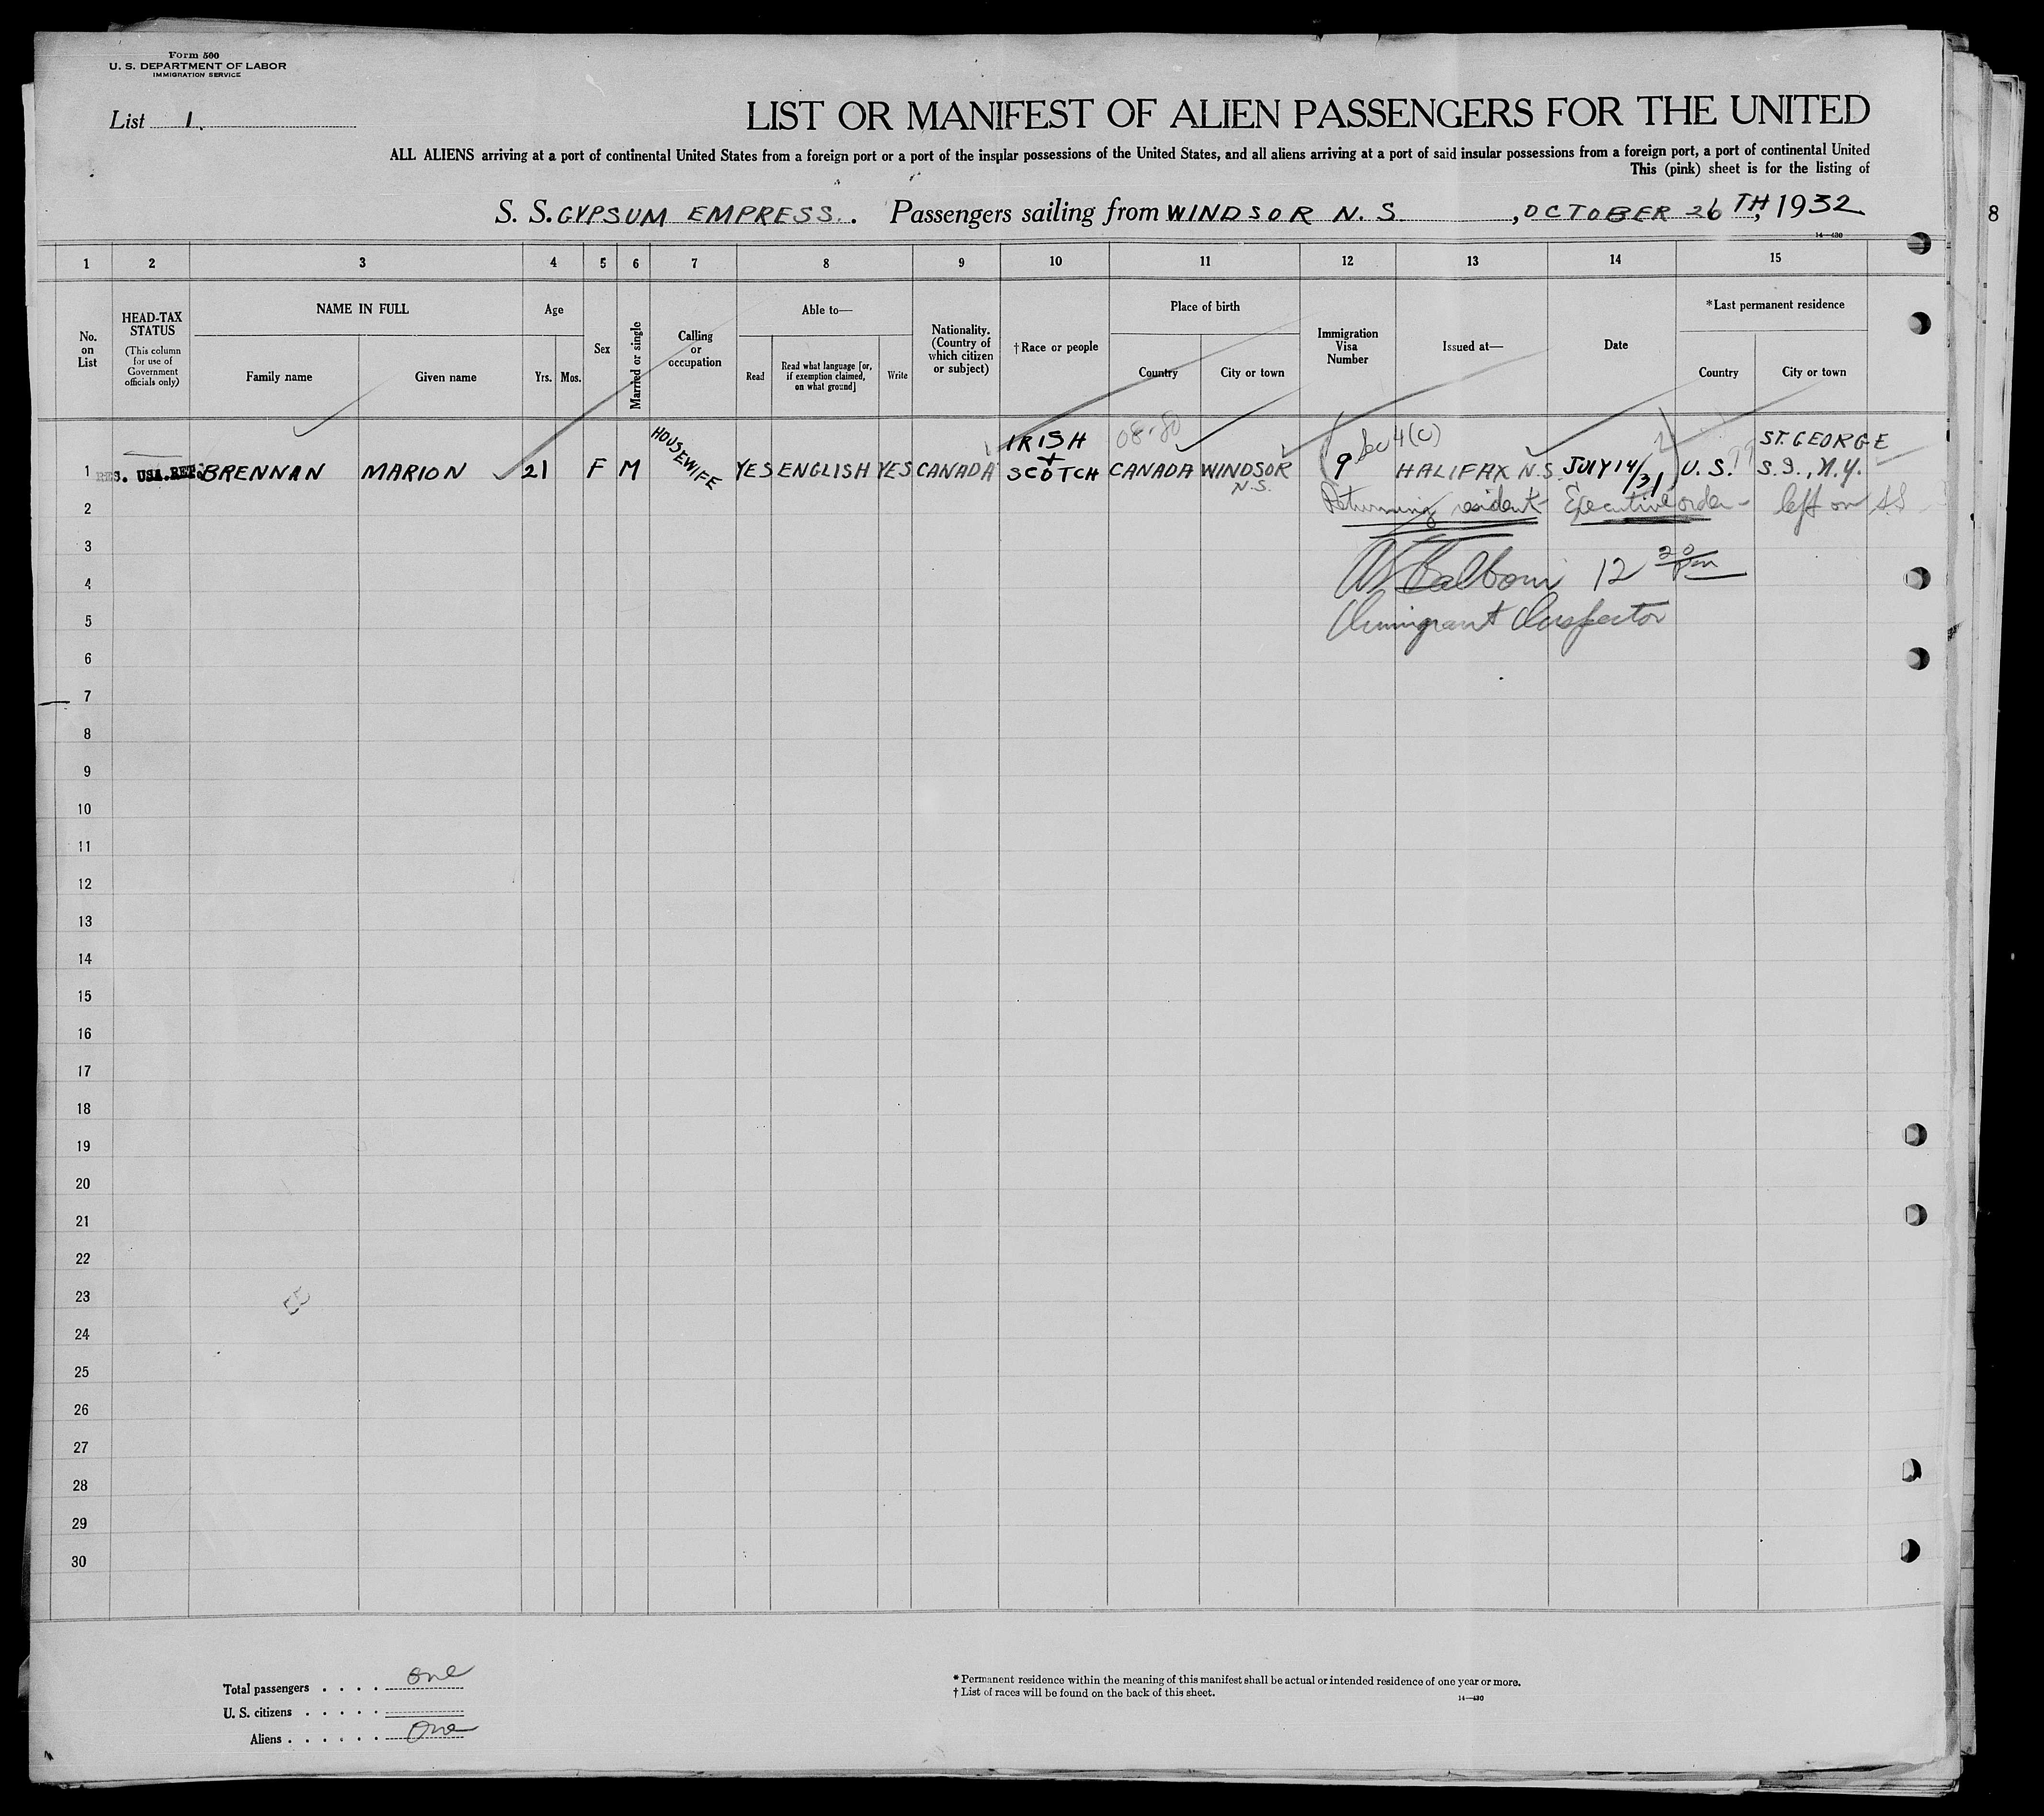 Form 500
U. S. DEPARTMENT OF LABOR
IMMIGRATION SERVICE
List 1.
LIST OR MANIFEST OF ALIEN PASSENGERS FOR THE UNITED
ALL ALIENS arriving at a port of continental United States from a foreign port or a port of the insular possessions of the United States, and all aliens arriving at a port of said insular possessions from a foreign port, a port of continental United
This (pink) sheet is for the listing of
S. S. GYPSUM EMPRESS. Passengers sailing from WINDSOR N. S. , OCTOBER 26 TH, 1932
8
14—430
1 2 3 4 5 6 7 8 9 10 11 12 13 14 15
No. on List
HEAD-TAX STATUS
(This column for use of Government officials only)
NAME IN FULL
Family name
Given name
Age
Yrs.
Mos.
Sex
Married or single
Calling or occupation
Able to—
Read
Read what language [or, if exemption claimed, on what ground]
Write
Nationality. (Country of which citizen or subject)
†Race or people
Place of birth
Country
City or town
Immigration Visa Number
Issued at—
Date
*Last permanent residence
Country
City or town
08-80
4(C)
1 USA. BRENNAN MARION 21 F M HOUSEWIFE YES ENGLISH YES CANADA IRISH + SCOTCH CANADA WINDSOR N.S. 9 HALIFAX N.S. JULY 14/31 U. S. ST. GEORGE S. I., N.Y.
2 Returning resident Executive order - left on SS
3
4 12 20 pm
5 Immigrant Inspector
6
7
8
9
10
11
12
13
14
15
16
17
18
19
20
21
22
23
24
25
26
27
28
29
30
Total passengers . . . . one
U. S. citizens . . . . .
Aliens . . . . . . one
* Permanent residence within the meaning of this manifest shall be actual or intended residence of one year or more.
† List of races will be found on the back of this sheet.
14—430